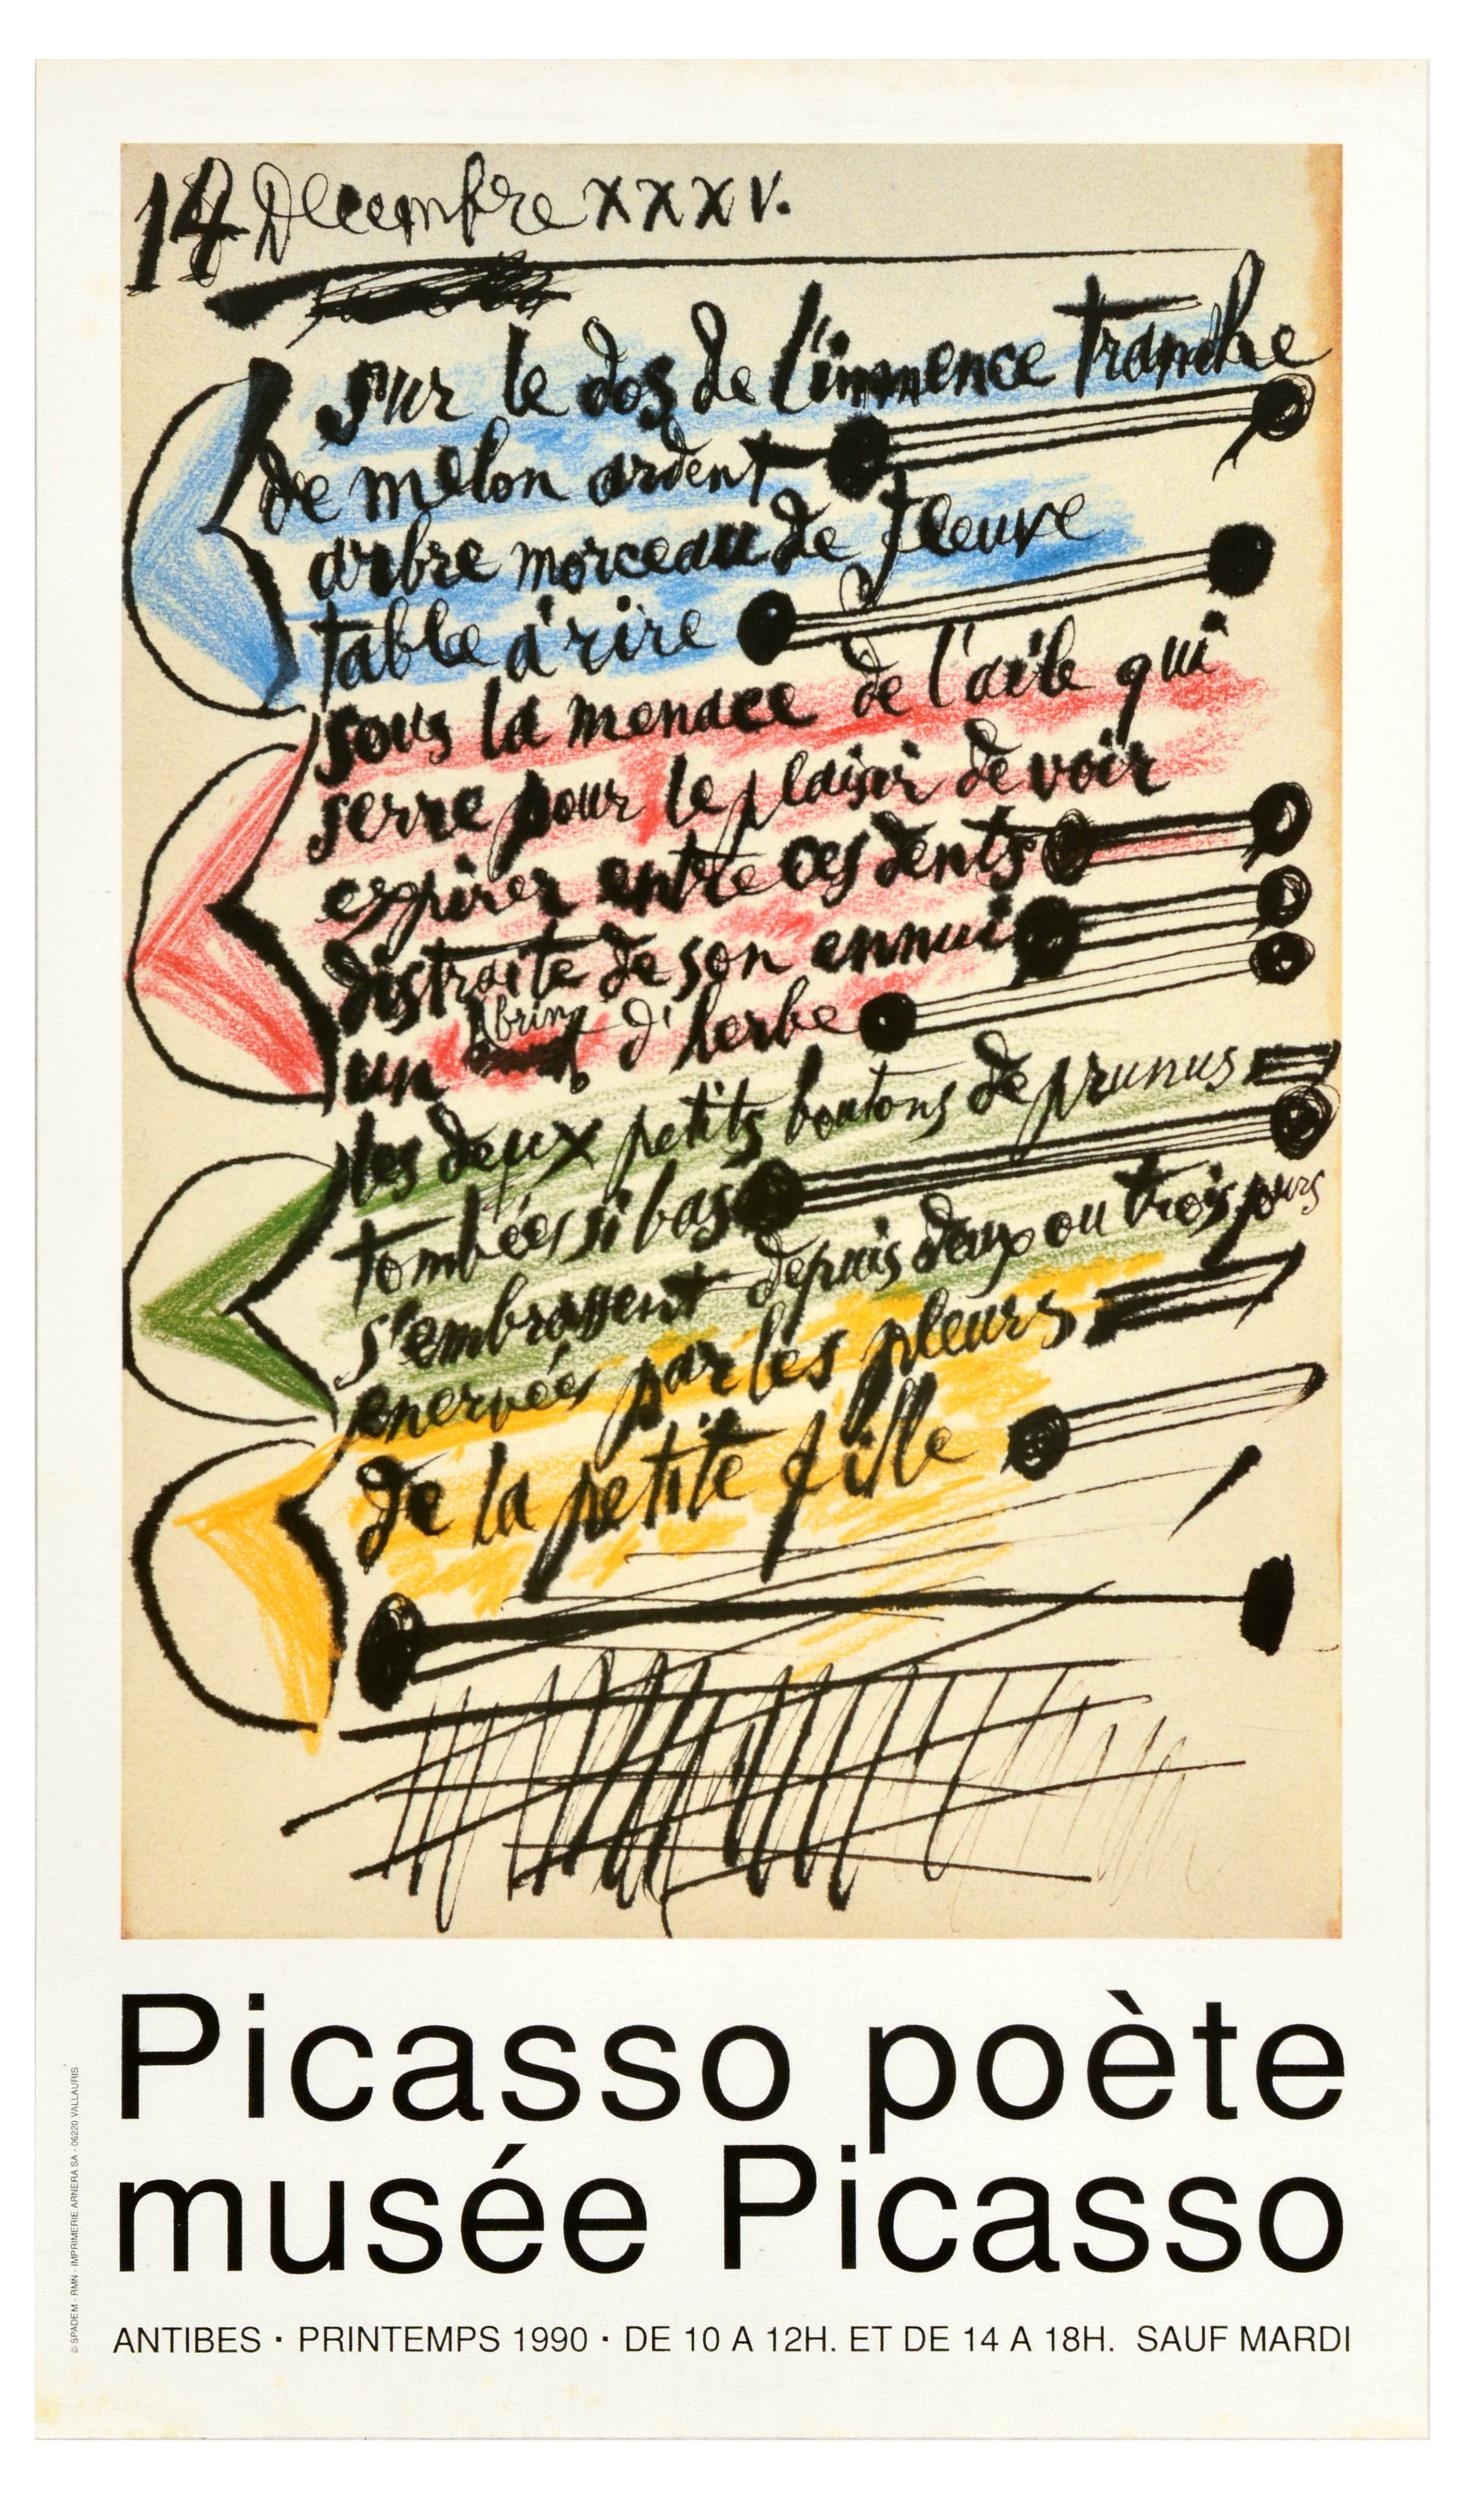 14 Decembre XXXV.
sur le dos de l'immence tranche
de melon ardent
arbre morceau de fleuve
table à rire
sous la menace de l'aile qui
serre pour le plaisir de voir
expirer entre ces dents
distraite de son ennui
un brin d'herbe
les deux petits boutons de prunus
tombées si bas
s'embrassent depuis deux ou trois jours
enervées par les pleurs
de la petite fille
Picasso poète
musée Picasso
ANTIBES · PRINTEMPS 1990 · DE 10 A 12H. ET DE 14 A 18H. SAUF MARDI
© SPADEM - RMN - IMPRIMERIE ARNERA SA - 06220 VALLAURIS